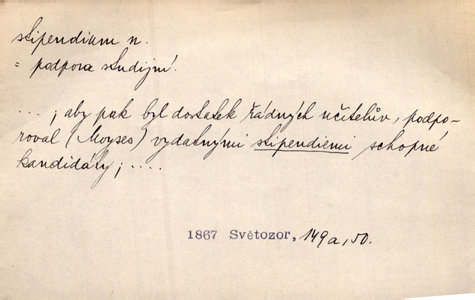 stipendium n.
= podpora studijní.
...; aby pak byl dostatek řádných učitelův, podpo-
roval (Moyses) vydatnými stipendiemi schopné
kandidáty; ....
1867 Světozor, 149a, 50.